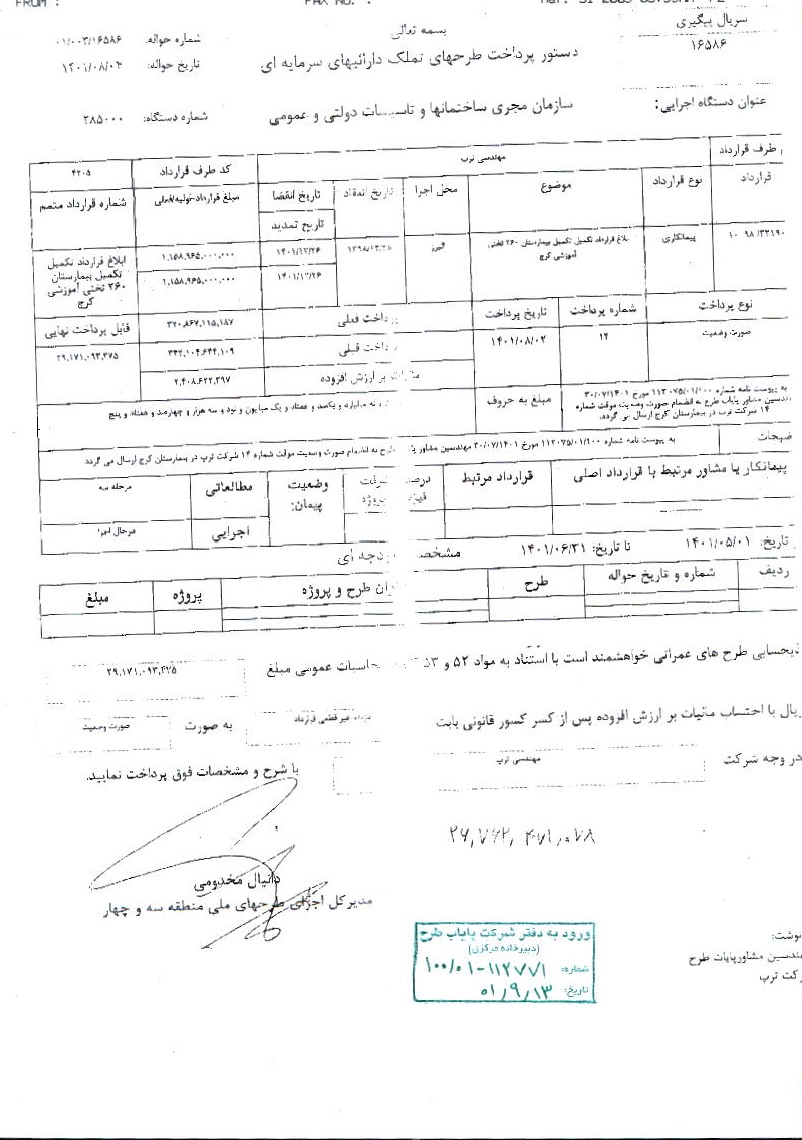 FROM :
FAX NO. :
سریال پیگیری
۱۶۵۸۶
بسمه تعالی
دستور پرداخت طرحهای تملک دارائیهای سرمایه ای
شماره حواله: ۰۱/۰۰۳/۱۶۵۸۶
تاریخ حواله: ۱۴۰۱/۰۸/۰۴
عنوان دستگاه اجرایی: سازمان مجری ساختمانها و تاسیسات دولتی و عمومی
شماره دستگاه: ۲۸۵۰۰۰
طرف قرارداد
مهندسی ترپ
کد طرف قرارداد
۴۲۰۵
قرارداد
نوع قرارداد
موضوع
محل اجرا
تاریخ انعقاد
تاریخ انقضا
تاریخ تمدید
مبلغ قرارداد-اولیه/فعلی
شماره قرارداد متمم
پیمانکاری
ابلاغ قرارداد تکمیل تکمیل بیمارستان ۲۶۰ تختی
آموزشی کرج
البرز
۱۴۰۱/۱۲/۲۶
۱۴۰۱/۱۲/۲۶
۱,۱۵۸,۹۶۵,۰۰۰,۰۰۰
۱,۱۵۸,۹۶۵,۰۰۰,۰۰۰
ابلاغ قرارداد تکمیل
تکمیل بیمارستان
۲۶۰ تختی آموزشی
کرج
نوع پرداخت
شماره پرداخت
تاریخ پرداخت
پرداخت فعلی
۳۷۰,۸۶۷,۱۱۵,۱۸۷
قابل پرداخت نهایی
صورت وضعیت
۱۴
۱۴۰۱/۰۸/۰۲
پرداخت قبلی
۳۴۲,۱۰۴,۶۴۴,۱۰۹
۲۹,۱۷۱,۰۹۳,۴۷۵
مالیات بر ارزش افزوده
۲,۴۰۸,۶۲۲,۳۹۷
به پیوست نامه شماره ۱۱۳۰۷۵/۰۱/۱۰۰ مورخ ۳۰/۰۷/۱۴۰۱
مهندسین مشاور پایاب طرح به انضمام صورت وضعیت موقت شماره
۱۴ شرکت ترپ در بیمارستان کرج ارسال می گردد.
مبلغ به حروف
نه میلیارد و یکصد و هفتاد و یک میلیون و نود و سه هزار و چهارصد و هفتاد و پنج
توضیحات
به پیوست نامه شماره ۱۱۳۰۷۵/۰۱/۱۰۰ مورخ ۳۰/۰۷/۱۴۰۱ مهندسین مشاور طرح به انضمام صورت وضعیت موقت شماره ۱۴ شرکت ترپ در بیمارستان کرج ارسال می گردد
پیمانکار یا مشاور مرتبط با قرارداد اصلی
قرارداد مرتبط
وضعیت
پیمان:
مطالعاتی
مرحله سه
اجرایی
مرحال اجرا
تاریخ: ۱۴۰۱/۰۵/۰۱
تا تاریخ: ۱۴۰۱/۰۶/۳۱
ردیف
شماره و تاریخ حواله
طرح
طرح و پروژه
پروژه
مبلغ
ذیحسابی طرح های عمرانی خواهشمند است با استناد به مواد ۵۲ و ۵۳ محاسبات عمومی مبلغ
۲۹,۱۷۱,۰۹۳,۴۷۵
ریال با احتساب مالیات بر ارزش افزوده پس از کسر کسور قانونی بابت
غیر قطعی قرارداد
به صورت
صورت وضعیت
در وجه شرکت
مهندسی ترپ
با شرح و مشخصات فوق پرداخت نمایید.
دانیال مخدومی
مدیرکل اجرای طرحهای ملی منطقه سه و چهار
ورود به دفتر شرکت پایاب طرح
(دبیرخانه مرکزی)
شماره: ۱۰۰/۰۱-۱۱۲۷۷۱
تاریخ: ۰۱/۹/۱۳
مهندسین مشاورپایاب طرح
شرکت ترپ